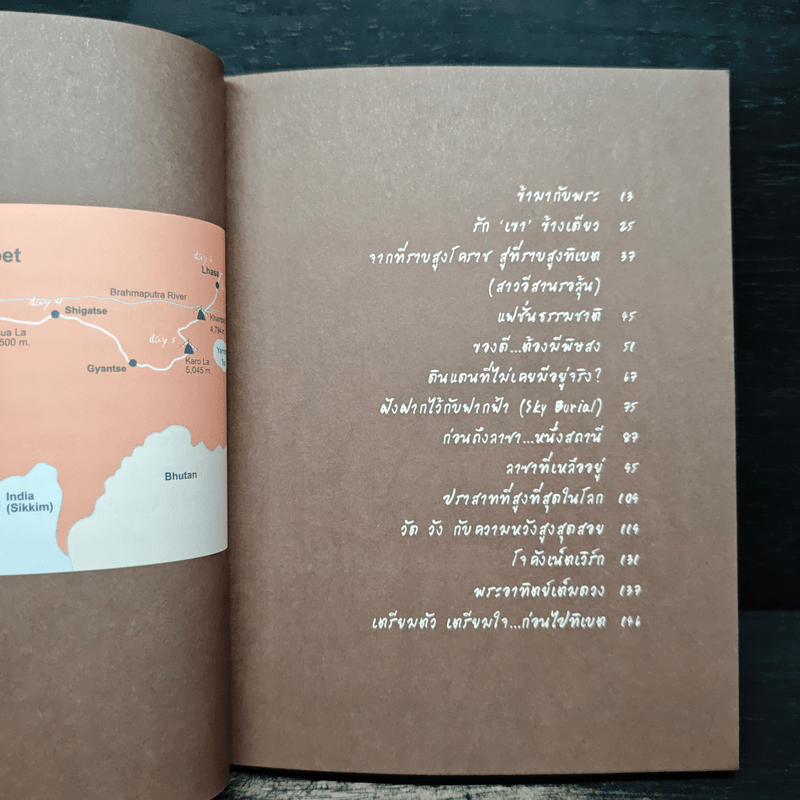 bet
day 6
Lhasa
Brahmaputra River
day 4
Shigatse
4,794 m.
day 5
Karo La
5,045 m.
Gyantse
Bhutan
India
(Sikkim)
ข้ามากับพระ 13
รัก 'เขา' ข้างเดียว 25
จากที่ราบสูงโคราช สู่ที่ราบสูงทิเบต 37
(สาวอีสานรอลุ้น)
แฟชั่นธรรมชาติ 45
ของดี...ต้องมีพิษสง 51
ดินแดนที่ไม่เคยมีอยู่จริง? 67
ฝังฝากไว้กับฟากฟ้า (Sky Burial) 75
ก่อนถึงลาซา...หนึ่งสถานี 87
ลาซาที่เหลืออยู่ 95
ปราสาทที่สูงที่สุดในโลก 109
วัด วัง กับความหวังสูงสุดสอย 119
โจคังเน็ตเวิร์ก 131
พระอาทิตย์เต็มดวง 137
เตรียมตัว เตรียมใจ...ก่อนไปทิเบต 146